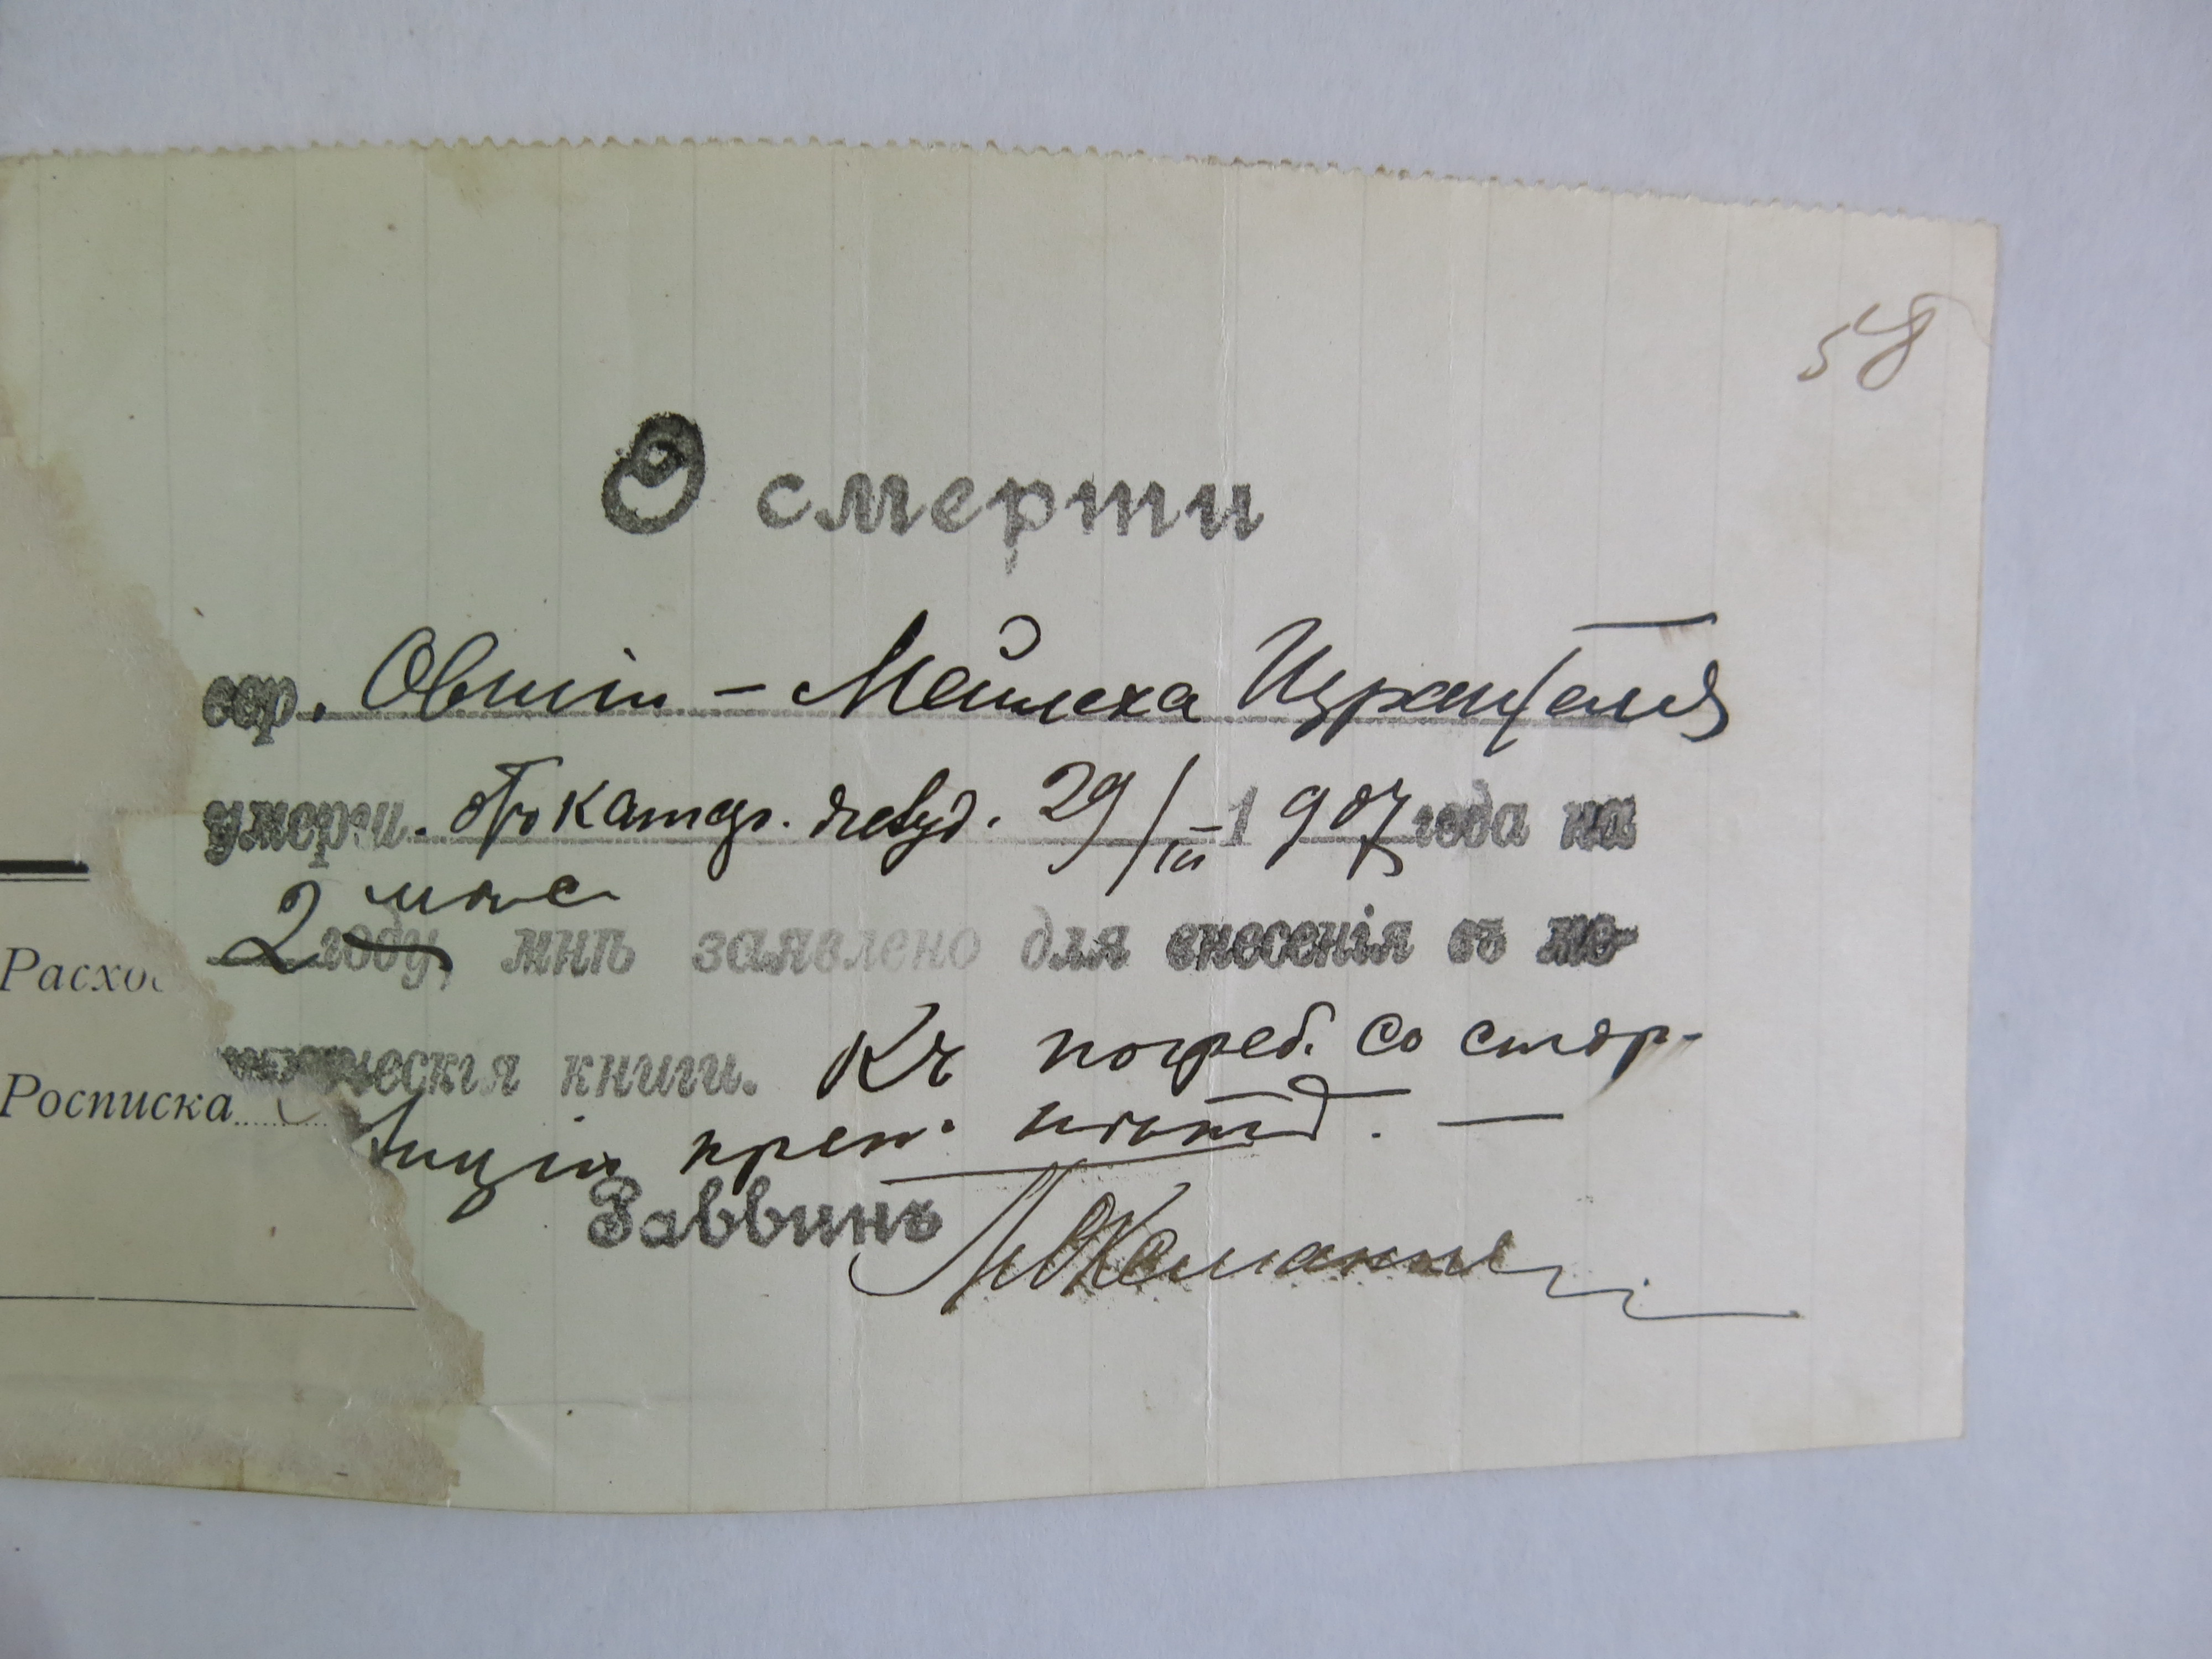 58
О смерти
евр. Овши – Мейлеха Израителя
умерш. отъ катар. желуд. 29/III 1907 года на
2 мѣс году, мнѣ заявлено для внесенія въ ме
трическія книги. Къ погреб. со стор-
Расхо
Росписка
препят.
Раввинъ